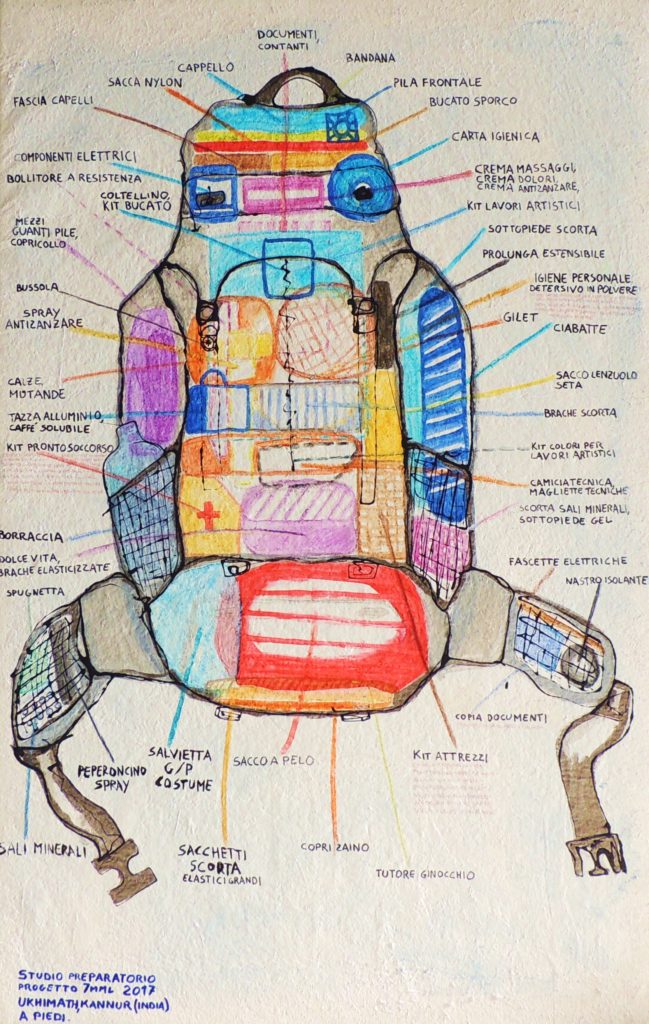 DOCUMENTI,
CONTANTI
BANDANA
CAPPELLO
SACCA NYLON
PILA FRONTALE
FASCIA CAPELLI
BUCATO SPORCO
CARTA IGIENICA
COMPONENTI ELETTRICI
BOLLITORE A RESISTENZA
CREMA MASSAGGI,
CREMA DOLORI,
CREMA ANTIZANZARE,
COLTELLINO,
KIT BUCATO
KIT LAVORI ARTISTICI
MEZZI
GUANTI PILE,
COPRICOLLO
SOTTOPIEDE SCORTA
PROLUNGA ESTENSIBILE
BUSSOLA
IGIENE PERSONALE
DETERSIVO IN POLVERE
SPRAY
ANTIZANZARE
GILET
CIABATTE
CALZE,
MUTANDE
SACCO LENZUOLO
SETA
TAZZA ALLUMINIO,
CAFFÈ SOLUBILE
BRACHE SCORTA
KIT PRONTO SOCCORSO
KIT COLORI PER
LAVORI ARTISTICI
CAMICIA TECNICA,
MAGLIETTE TECNICHE
SCORTA SALI MINERALI,
SOTTOPIEDE GEL
BORRACCIA
DOLCE VITA,
BRACHE ELASTICIZZATE
FASCETTE ELETTRICHE
NASTRO ISOLANTE
SPUGNETTA
COPIA DOCUMENTI
PEPERONCINO
SPRAY
SALVIETTA
G/P
COSTUME
SACCO A PELO
KIT ATTREZZI
SALI MINERALI
SACCHETTI
SCORTA
ELASTICI GRANDI
COPRIZAINO
TUTORE GINOCCHIO
STUDIO PREPARATORIO
PROGETTO 7MML 2017
UKHIMATH, KANNUR (INDIA)
A PIEDI.